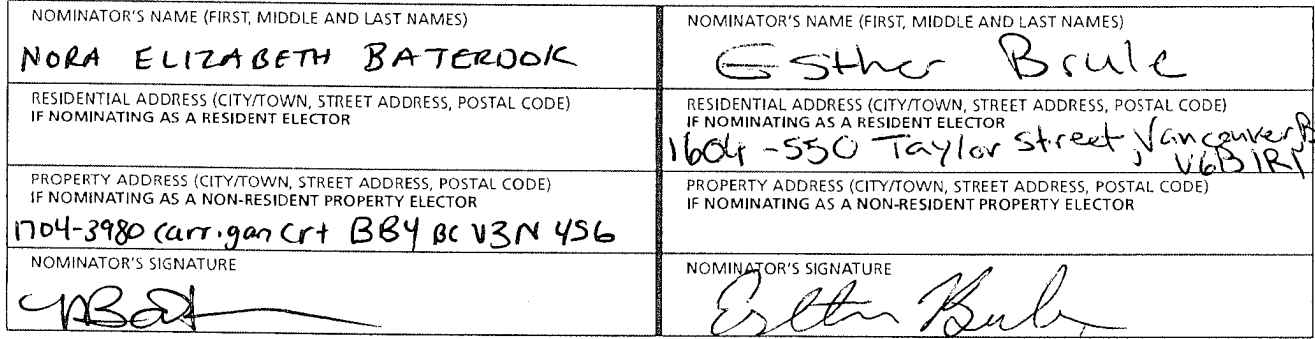 NOMINATOR'S NAME (FIRST, MIDDLE AND LAST NAMES)
NORA ELIZABETH BATEROOK
RESIDENTIAL ADDRESS (CITY/TOWN, STREET ADDRESS, POSTAL CODE)
IF NOMINATING AS A RESIDENT ELECTOR
PROPERTY ADDRESS (CITY/TOWN, STREET ADDRESS, POSTAL CODE)
IF NOMINATING AS A NON-RESIDENT PROPERTY ELECTOR
1704-3980 Carrigan Crt BBY BC V3N 4S6
NOMINATOR'S SIGNATURE
NOMINATOR'S NAME (FIRST, MIDDLE AND LAST NAMES)
Esther Brule
RESIDENTIAL ADDRESS (CITY/TOWN, STREET ADDRESS, POSTAL CODE)
IF NOMINATING AS A RESIDENT ELECTOR
1604-550 Taylor Street, Vancouver, B
V6B 1R1
PROPERTY ADDRESS (CITY/TOWN, STREET ADDRESS, POSTAL CODE)
IF NOMINATING AS A NON-RESIDENT PROPERTY ELECTOR
NOMINATOR'S SIGNATURE